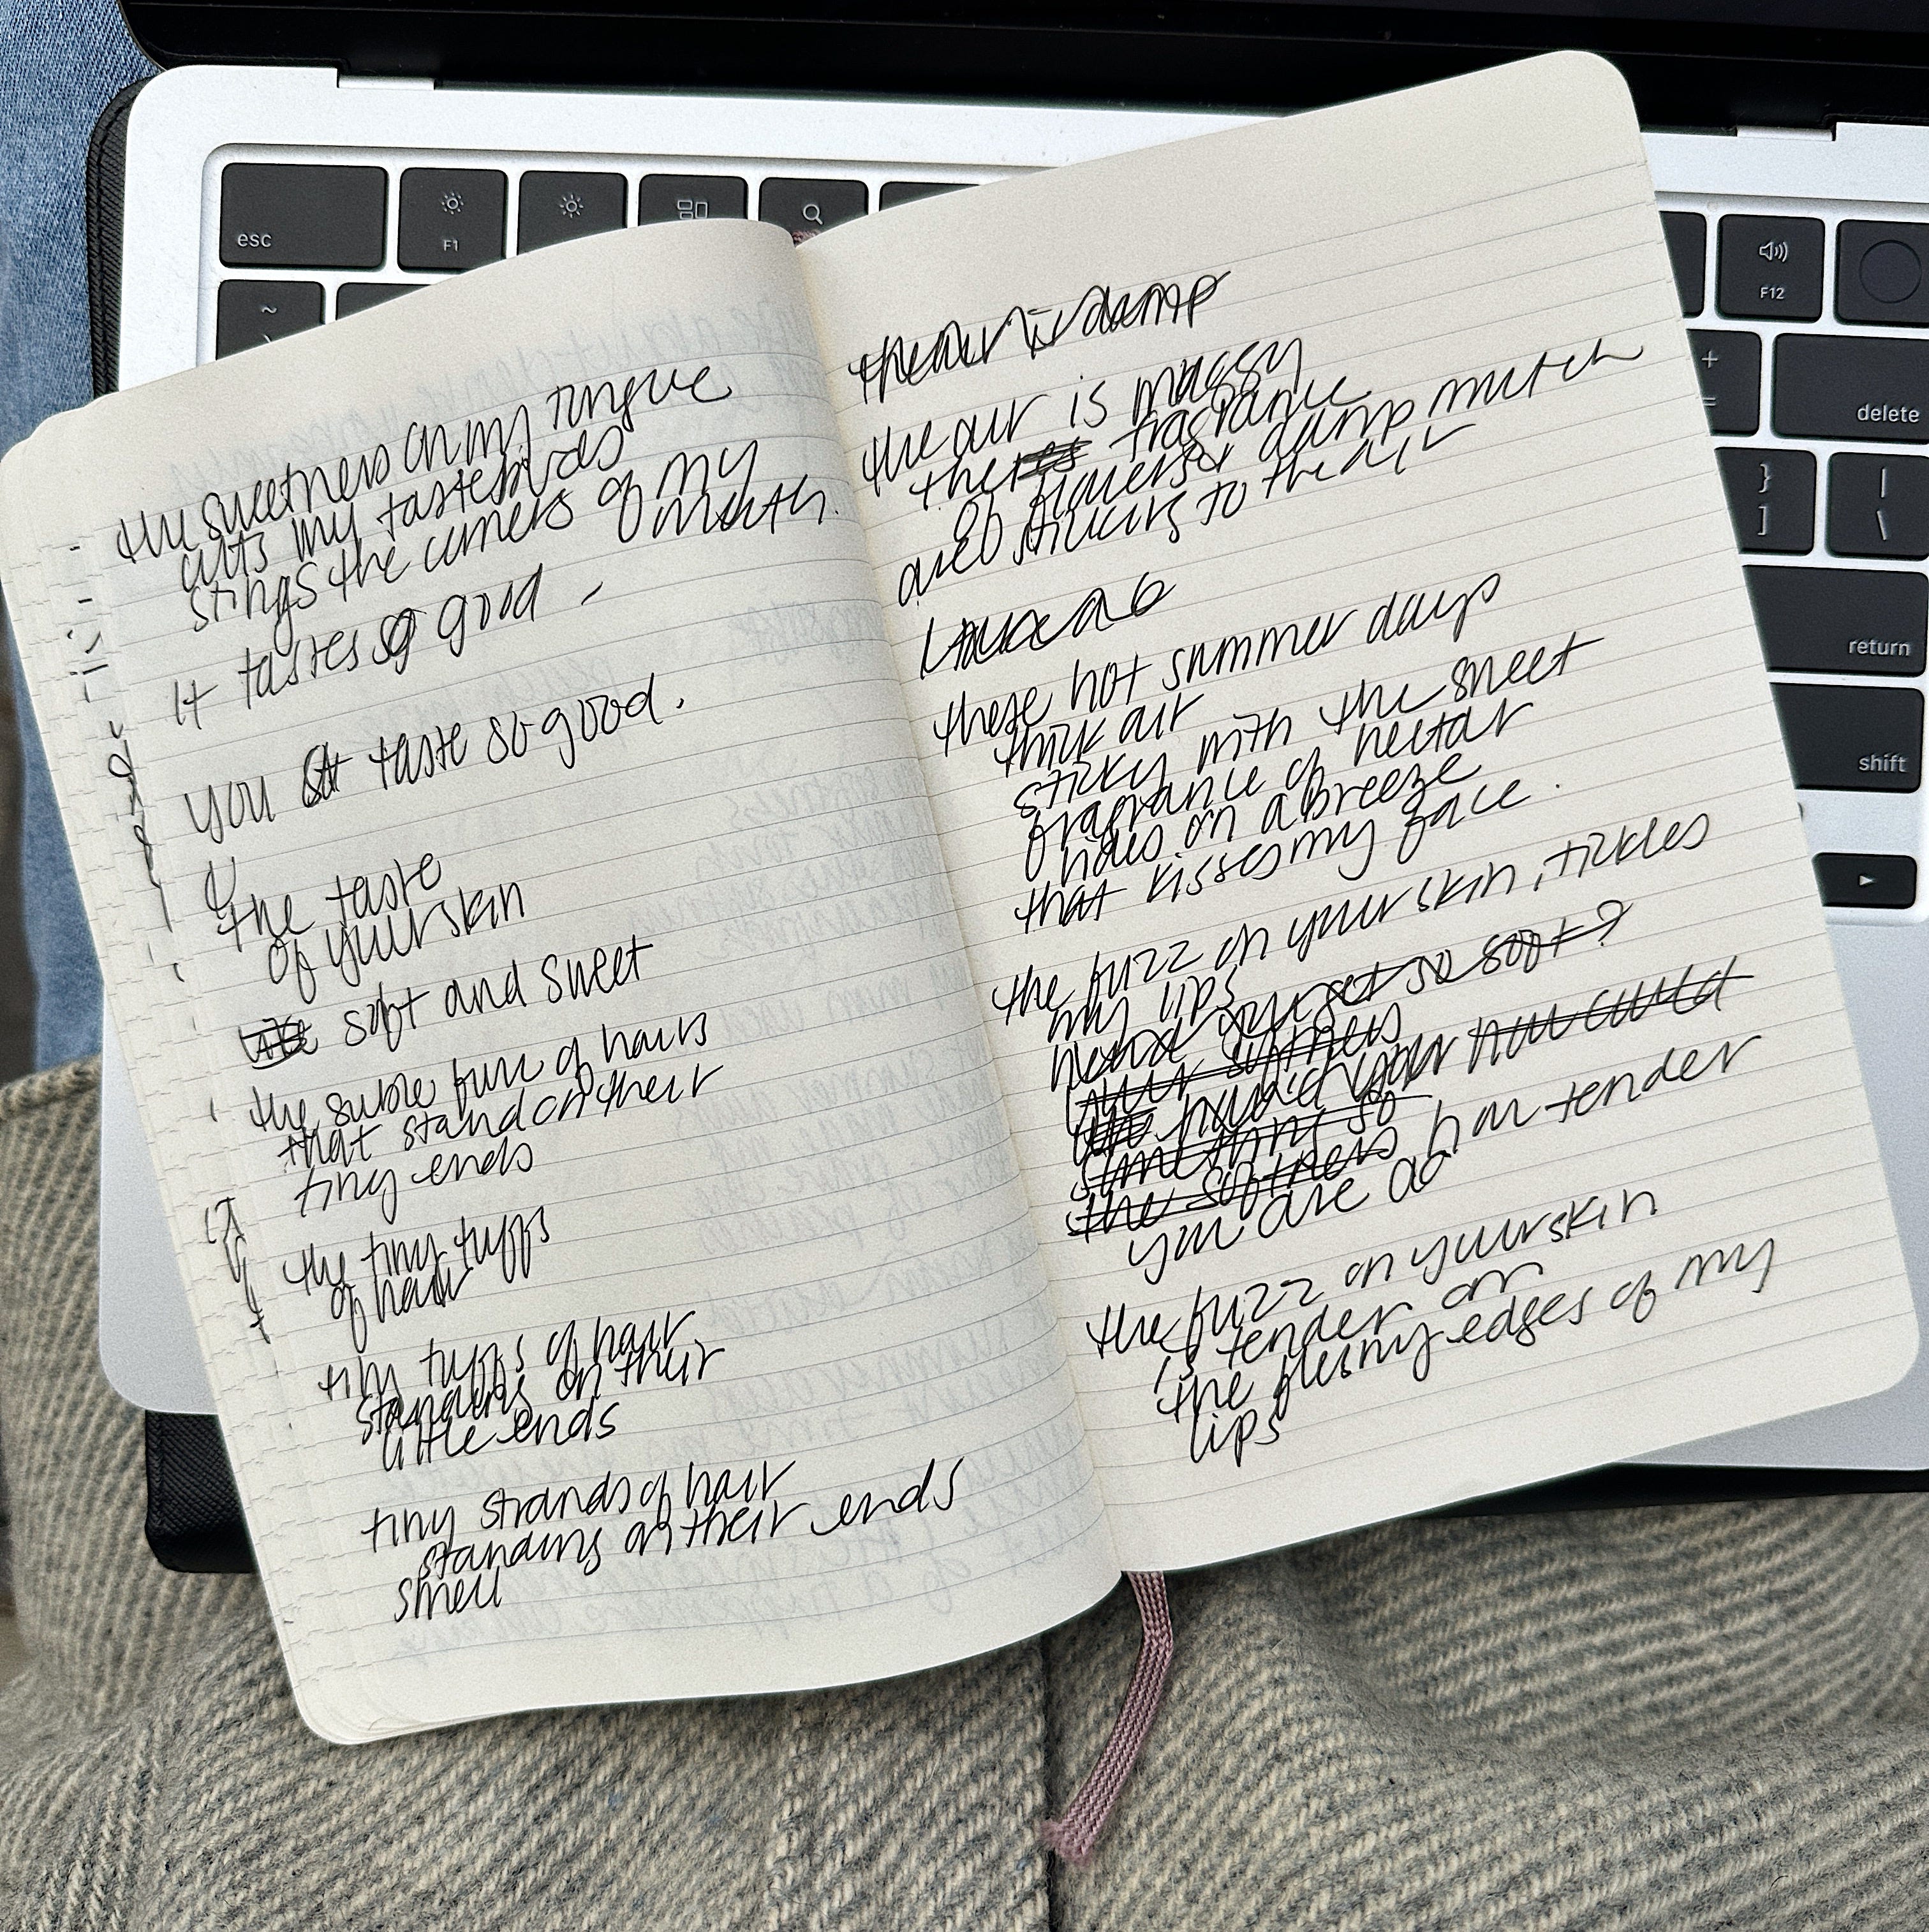 esc
F1
F12
~
+
=
delete
}
]
|
\
return
shift
the sweetness on my tongue
cuts my tastebuds
stings the corners of my
mouth.
it tastes so good –
you taste so good.
the taste
of your skin
soft and sweet
the subtle fuzz of hairs
that stand on their
tiny ends
the tiny tuffs
of hair
tiny tuffs of hair
standing on their
little ends
tiny strands of hair
standing on their ends
smell
the air is damp
the air is muggy
the fragrance
of flowers & damp mulch
are sticking to the air
these hot summer days
thick air
sticky with the sweet
fragrance of nectar
rides on a breeze
that kisses my face.
the fuzz on your skin, tickles
my lips
how do you get so soft?
your softness
how could
something so
the softness how tender
you are
the fuzz on your skin
is tender on
the fleshy edges of my
lips